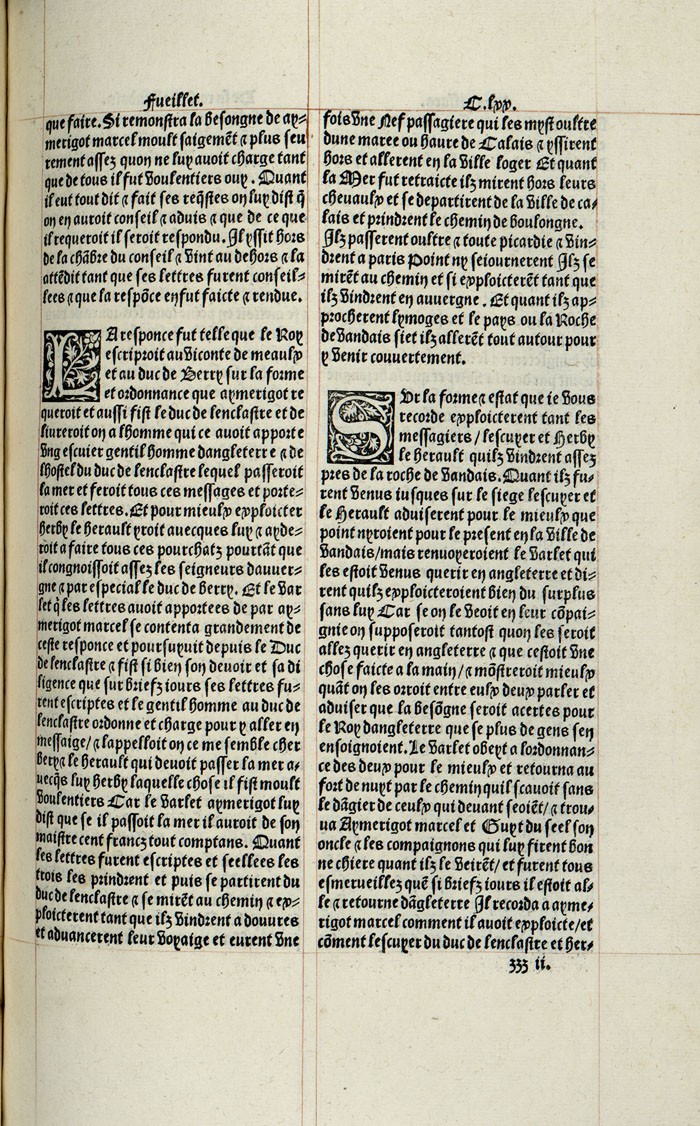 Fueillet.
C.lxx.
que faire. Si remonstra la besongne de ay=
merigot marcel moult saigemēt ⁊ plus seu
rement assez quon ne luy auoit charge tant
que de tous il fut voulentiers ouy. Quant
il eut tout dit ⁊ fait ses reqstes on luy dist q̄
on en auroit conseil ⁊ aduis ⁊ que de ce que
il requeroit il seroit respondu. Il yssit hors
de la chābre du conseil ⁊ vint au dehors ⁊ la
attēdit tant que ses lettres furent conseil=
lees ⁊ que la respōce en fut faicte ⁊ rendue.
LA responce fut telle que le Roy
escriproit au viconte de meaulx
et au duc de Berry sur la forme
et ordonnance que aymerigot re
queroit et aussi fist le duc de lenclastre et de
liureroit on a lhomme qui ce auoit apporte
vng escuier gentil homme dangleterre ⁊ de
lhostel du duc de lenclastre lequel passeroit
la mer et feroit tous ces messages et porte=
roit ces lettres. Et pour mieulx exploicter
herby le herault yroit auecques luy ⁊ ayde=
roit a faire tous ces pourchatz pourtāt que
il congnoissoit assez les seigneurs dauuer=
gne ⁊ par especial le duc de berry. Et le var
let q̄ les lettres auoit apportees de par ay=
merigot marcel se contenta grandement de
ceste responce et poursuyuit depuis le Duc
de lenclastre ⁊ fist si bien son deuoir et sa di
ligence que sur briefz iours ses lettres fu=
rent escriptes et le gentil homme au duc de
lenclastre ordonne et charge pour y aller en
messaige/ ⁊ lappelloit on ce me semble cher
bery ⁊ le herault qui deuoit passer la mer a=
uecq̄s luy herby laquelle chose il fist moult
voulentiers Car le varlet aymerigot luy
dist que se il passoit la mer il auroit de son
maistre cent francz tout comptans. Quant
les lettres furent escriptes et seellees les
trois les prindrent et puis se partirent du
duc de lenclastre ⁊ se mirēt au chemin ⁊ ex=
ploicterent tant que ilz vindrent a douures
et aduancerent leur voyaige et eurent vne
fois vne Nef passagiere qui les myst oultre
dune maree ou haure de Calais ⁊ yssirent
hors et allerent en la ville loger Et quant
la Mer fut retraicte ilz mirent hors leurs
cheuaulx et se departirent de la ville de ca=
lais et prindrent le chemin de boulongne.
Ilz passerent oultre ⁊ toute picardie ⁊ vin=
drent a paris Point ny seiournerent Ilz se
mirēt au chemin et si exploicterēt tant que
ilz vindrent en auuergne. Et quant ilz ap=
procherent lymoges et le pays ou la Roche
de vandais siet ilz allerēt tout autour pour
y venir couuertement.
SUr la forme ⁊ estat que ie vous
recorde exploicterent tant les
messagiers/ lescuyer et Herby
le herault quilz vindrent assez
pres de la roche de vandais. Quant ilz fu=
rent venus iusques sur le siege lescuyer et
le Herault aduiserent pour le mieulx que
point nyroient pour le present en la ville de
vandais/mais renuoyeroient le varlet qui
les estoit venus querir en angleterre et di=
rent quilz exploicteroient bien du surplus
sans luy Car se on le veoit en leur cōpai=
gnie on supposeroit tantost quon les seroit
allez querir en angleterre ⁊ que cestoit vne
chose faicte a la main/ ⁊ mōstreroit mieulx
quāt on les orroit entre eulx deux parler et
aduiser que la besōgne seroit acertes pour
le Roy dangleterre que se plus de gens sen
ensoignoient. Le varlet obeyt a lordonnan=
ce des deux pour le mieulx et retourna au
fort de nuyt par le chemin quil scauoit sans
le dāgier de ceulx qui deuant seoiēt/ ⁊ trou=
ua Aymerigot marcel et Guyt du seel son
oncle ⁊ les compaignons qui luy firent bon
ne chiere quant ilz le veirēt/ et furent tous
esmerueillez quē si briefz iours il estoit al=
le ⁊ retourne dāgleterre Il recorda a ayme=
rigot marcel comment il auoit exploicte/et
cōment lescuyer du duc de lenclastre et her=
zzz ii.